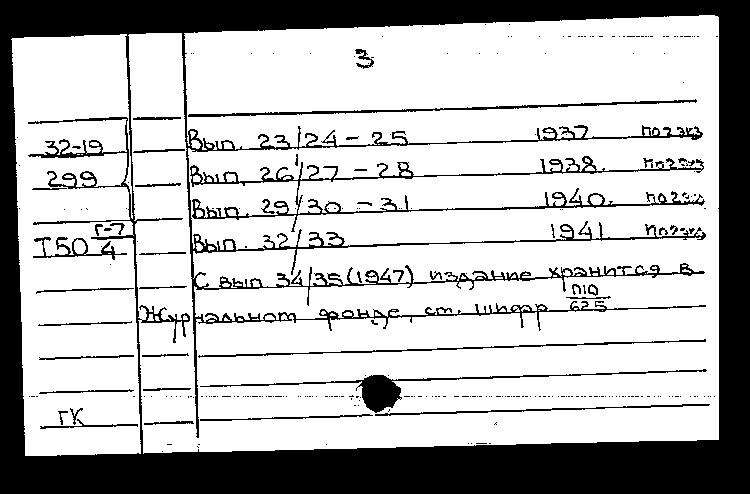 3
32-19 Вып. 23/24 - 25 1937 по 2 экз
299 Вып. 26/27 - 28 1938. по 2 экз
Вып. 29/30 - 31 1940. по 2 экз
I50 Г-7/4 Вып. 32/33 1941 по 2 экз
С вып 34/35 (1947) издание хранится в
Журнальном фонде, ст. шифр П10/625
ГК